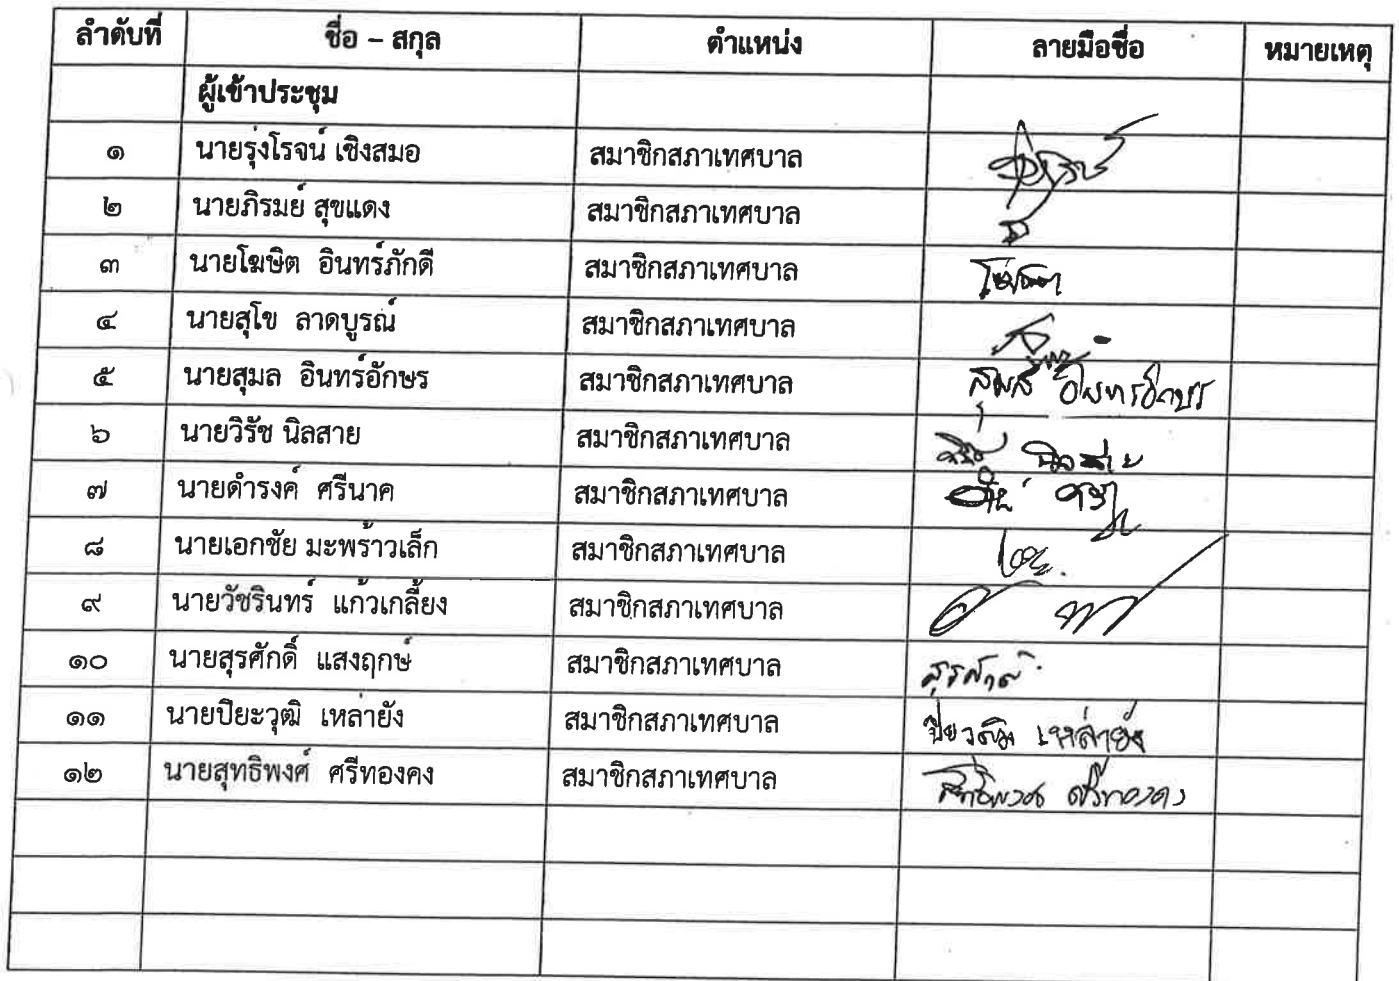 ลำดับที่ ชื่อ – สกุล ตำแหน่ง ลายมือชื่อ หมายเหตุ
ผู้เข้าประชุม
๑ นายรุ่งโรจน์ เชิงสมอ สมาชิกสภาเทศบาล
๒ นายภิรมย์ สุขแดง สมาชิกสภาเทศบาล
๓ นายโฆษิต อินทร์ภักดี สมาชิกสภาเทศบาล
๔ นายสุโข ลาดบูรณ์ สมาชิกสภาเทศบาล
๕ นายสุมล อินทร์อักษร สมาชิกสภาเทศบาล
๖ นายวิรัช นิลสาย สมาชิกสภาเทศบาล
๗ นายดำรงค์ ศรีนาค สมาชิกสภาเทศบาล
๘ นายเอกชัย มะพร้าวเล็ก สมาชิกสภาเทศบาล
๙ นายวัชรินทร์ แก้วเกลี้ยง สมาชิกสภาเทศบาล
๑๐ นายสุรศักดิ์ แสงฤกษ์ สมาชิกสภาเทศบาล
๑๑ นายปิยะวุฒิ เหล่ายัง สมาชิกสภาเทศบาล เหล่ายัง
๑๒ นายสุทธิพงศ์ ศรีทองคง สมาชิกสภาเทศบาล